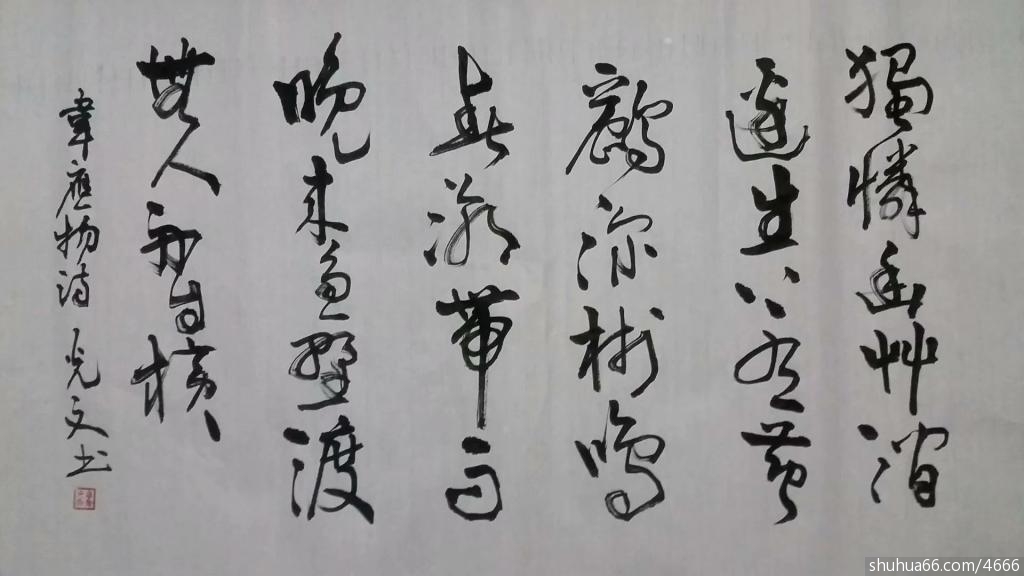 獨憐幽艸澗
邊生上有黃
鸝深樹鳴
春潮帶雨
晚來急野渡
無人舟自橫
韋應物詩 光文书
shuhua66.com/4666